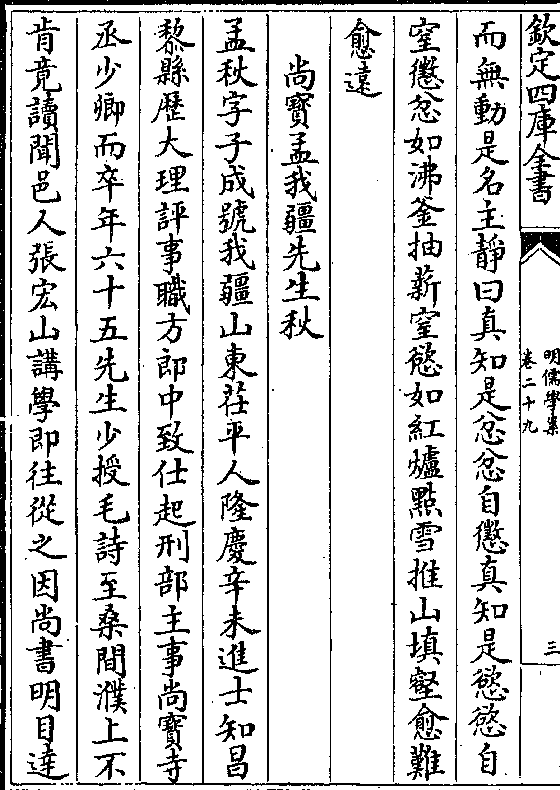 欽定四庫全書
明儒學案
卷二十九
三
而無動是名主靜曰真知是忿忿自懲真知是慾慾自
窒懲忿如沸釜抽薪窒慾如紅爐點雪推山填壑愈難
愈遠
尚寶孟我疆先生秋
孟秋字子成號我疆山東茌平人隆慶辛未進士知昌
黎縣歴大理評事職方郎中致仕起刑部主事尚寶寺
丞少卿而卒年六十五先生少授毛詩至桑間濮上不
肯竟讀聞邑人張宏山講學即往從之因尚書明目達